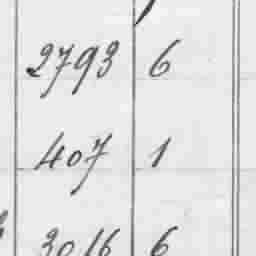 2793 6
407 1
3016 6